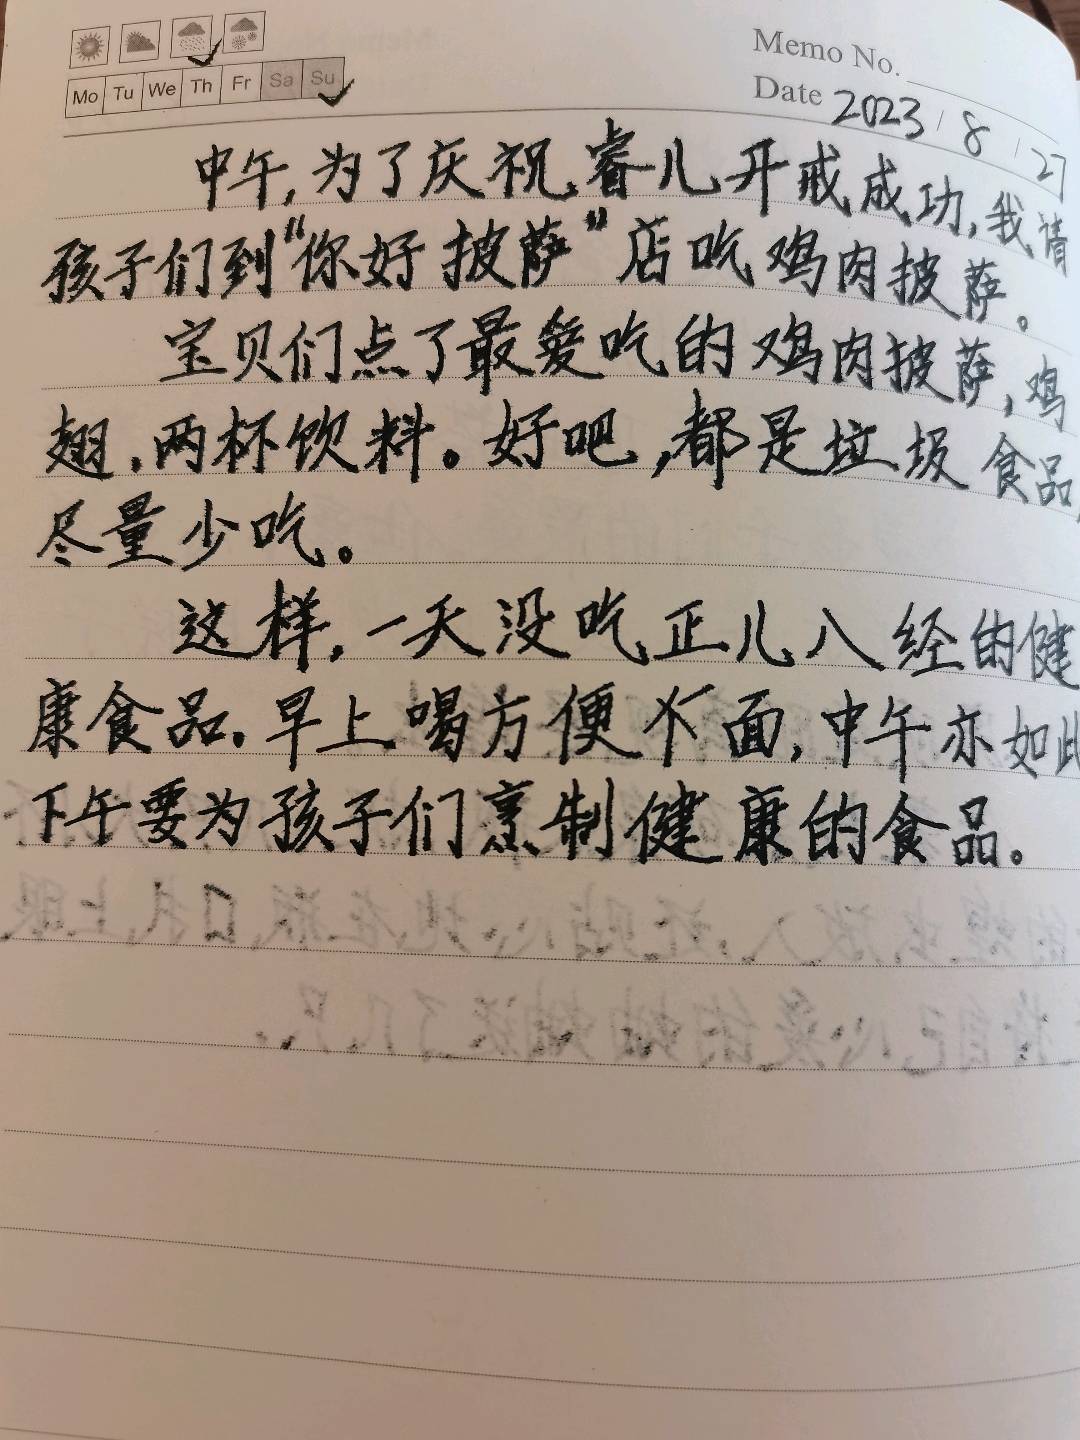 Memo No.
Mo Tu We Th Fr Sa Su
Date 2023/8/27
中午,为了庆祝睿儿开戒成功,我请
孩子们到“你好披萨”店吃鸡肉披萨。
宝贝们点了最爱吃的鸡肉披萨,鸡
翅,两杯饮料。好吧,都是垃圾食品,
尽量少吃。
这样,一天没吃正儿八经的健
康食品.早上喝方便面,中午亦如此
下午要为孩子们烹制健康的食品。